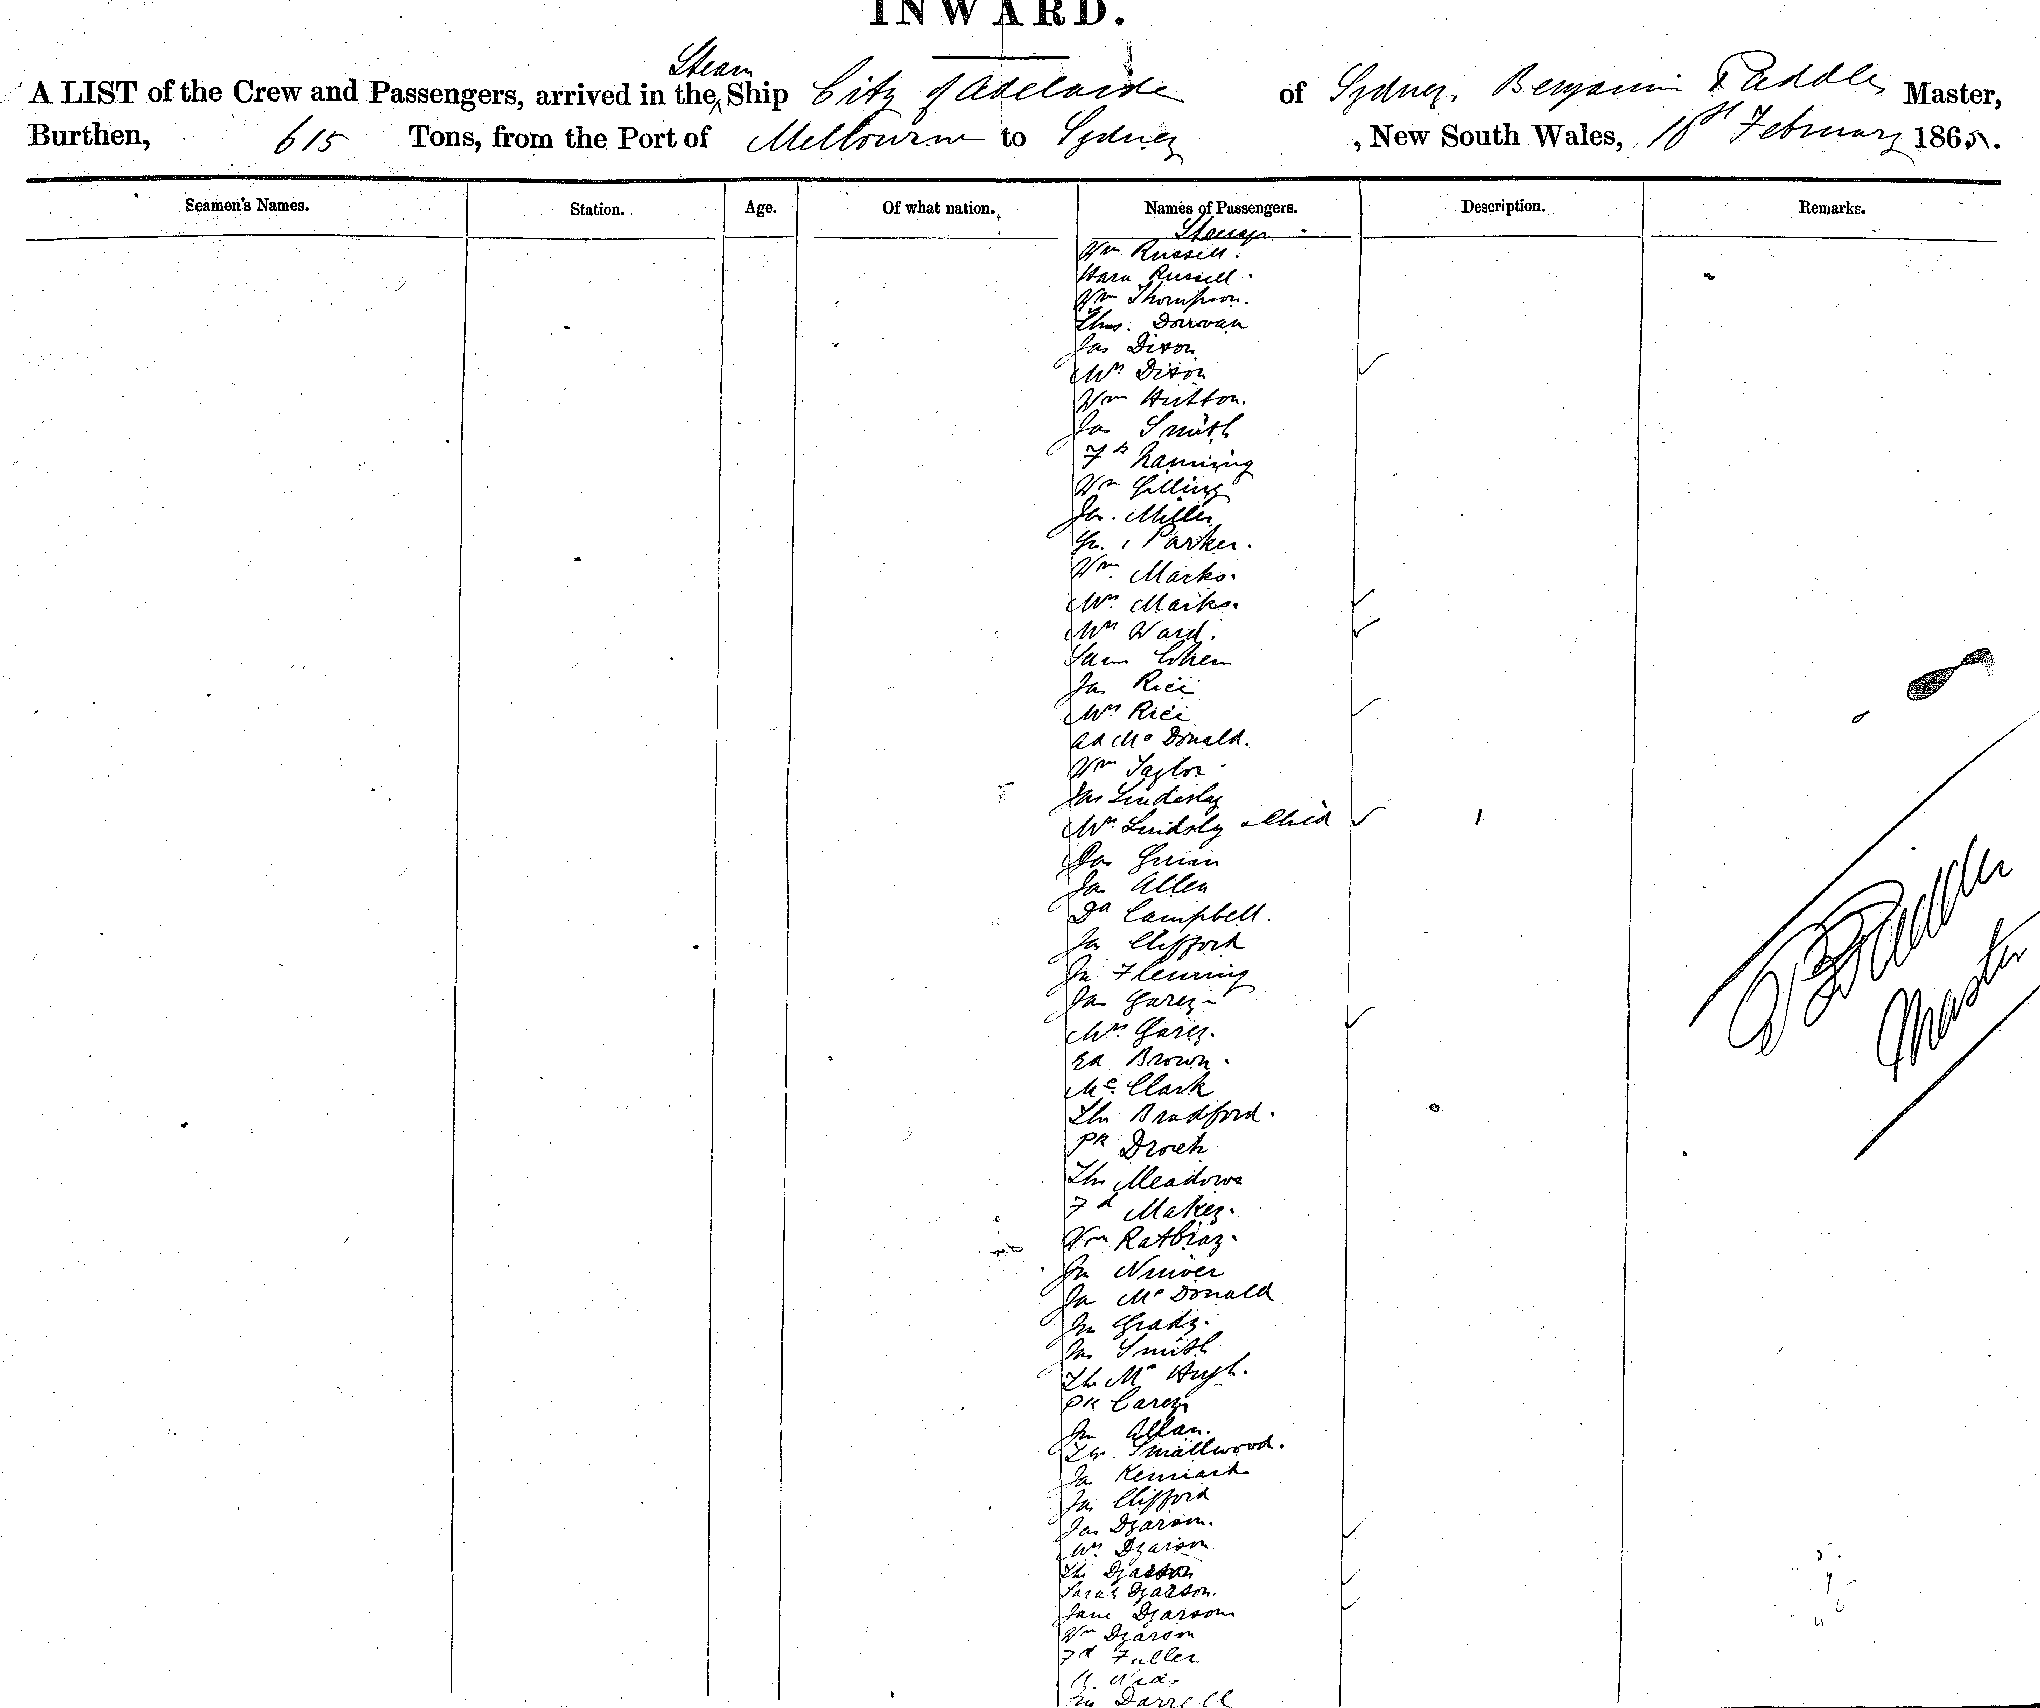 INWARD.
A LIST of the Crew and Passengers, arrived in the Steam Ship City of Adelaide of Sydney, Benjamin Paddle Master,
Burthen, 615 Tons, from the Port of Melbourne to Sydney, New South Wales, 18th February 1865.
Seamen's Names. Station. Age. Of what nation. Names of Passengers. Description. Remarks.
Wm Russell.
Russell.
Wm Thompson.
Thos. Donovan
Jas Dixon
Mrs Dixon
Wm Hutton.
Jas Smith
Wm Gilling
Jas. Miller
Parker.
Wm Marks.
Mrs Marks.
Mrs Ward.
Sam Cohen
Jas Rice
Mrs Rice
Ad McDonald.
Wm Taylor
Jas Lindesly
Mrs Lindsly & Child 1
Jas
Jas Allen
Dd Campbell.
Jas Clifford
Jn Fleming
Jas Garey
Mrs Garey.
Ed Brown.
Mc. Clark
Ths Bradford.
Pk
Ths Meadows
Fd Makey.
Wm Ratbray.
Jn
Ja McDonald
Jn Grady.
Jas Smith
Th McHugh.
Pk Carey
Jn Allan.
Smallwood.
Ja
Jas Clifford
Jas Dyarson.
Mrs Dyarson
Ths Dyarson
Sarah Dyarson.
Jane Dyarson
Wm Dyarson
Fd Fuller
Jn Darrell
Master